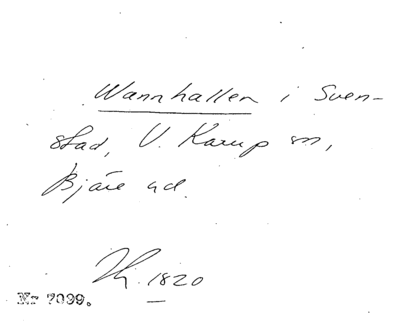 Wannhallen i Sven-
stad, V. Karup sn,
Bjäre hd.
1820
Nr 7099.